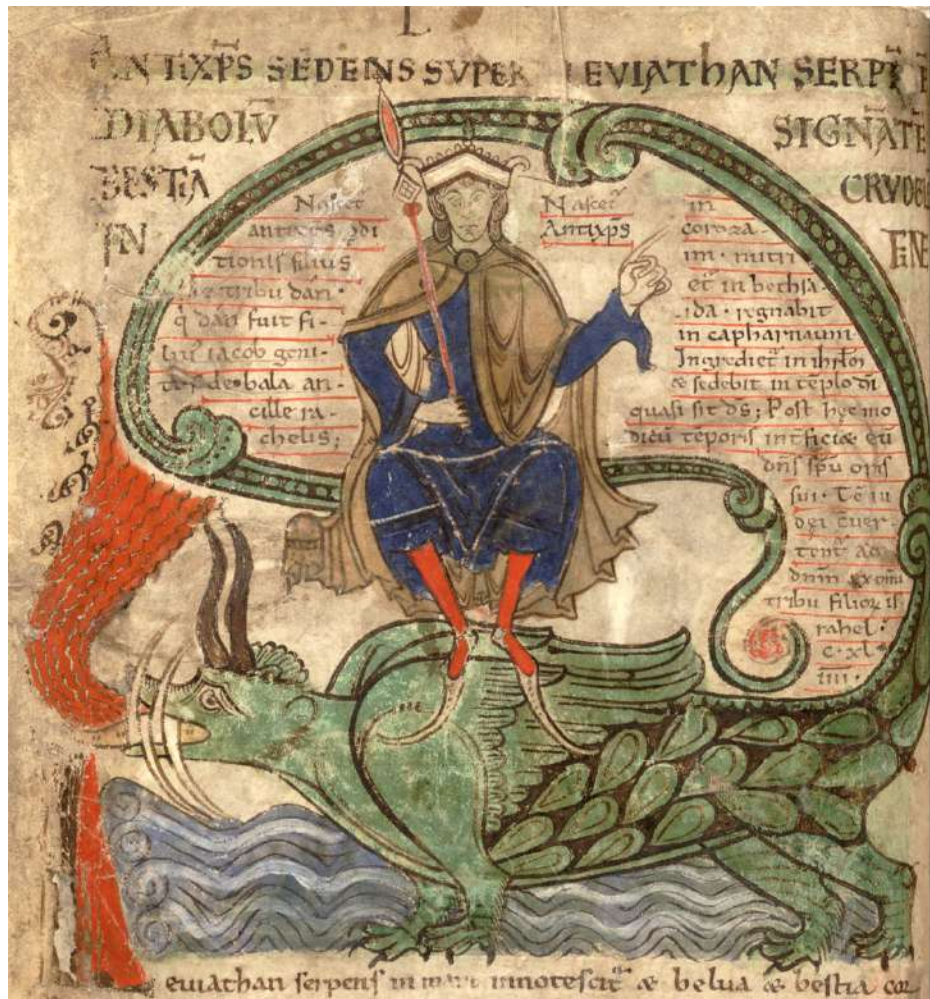 L
ANTIXPS SEDENS SVPER LEVIATHAN SERPĒ
DIABOLV̄ SIGNĀTĒ
BESTIĀ CRVDEL
IN FINE
Nascet̄
antixp̄s ꝑdi
tionis filius
de tribu dan·
q̇ dan fuit fi-
lius iacob geni-
de bala an-
cille ra-
chelis;
Nascet̄ in
Antixp̄s coroza-
im· nutri
et̄ in bethsa-
ida· regnabit
in capharnaum
Ingrediet̄ in ihrl̄m
& sedebit in tēplo dī
quasi sit ds̄; Post hęc mo
dicū tēporis int̄ficiæ eū
dn̄s sp̄u oris
sui· Tē iu
dęi c̄uer-
tent̄ ad
dnm̄ ex om̄i
tribu filioꝝ is
rahel·
c·xl·
iiii·
euiathan serpens in mari innotescit̄ & belua & bestia cor